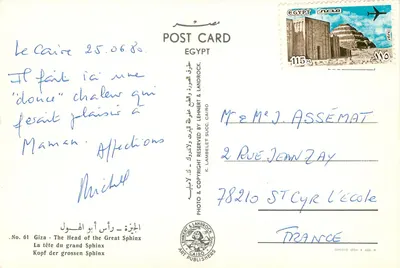 Le Caire 25.06.80
Il fait ici une
"douce" chaleur qui
ferait plaisir à
Maman. Affections
Michel
الجيزة - رأس أبو الهول
No. 61 Giza - The Head of the Great Sphinx
La tête du grand Sphinx
Kopf der grossen Sphinx
مصر
POST CARD
EGYPT
PHOTO & COPYRIGHT RESERVED BY LEHNERT & LANDROCK
K. LAMBELET SUCC. CAIRO
LEHNERT & LANDROCK
CAIRO
ART PUBLISHERS
EGYPT
115
١١٥
M & Me J. ASSÉMAT
2 RUE JEAN ZAY
78210 ST CYR L'ÉCOLE
FRANCE